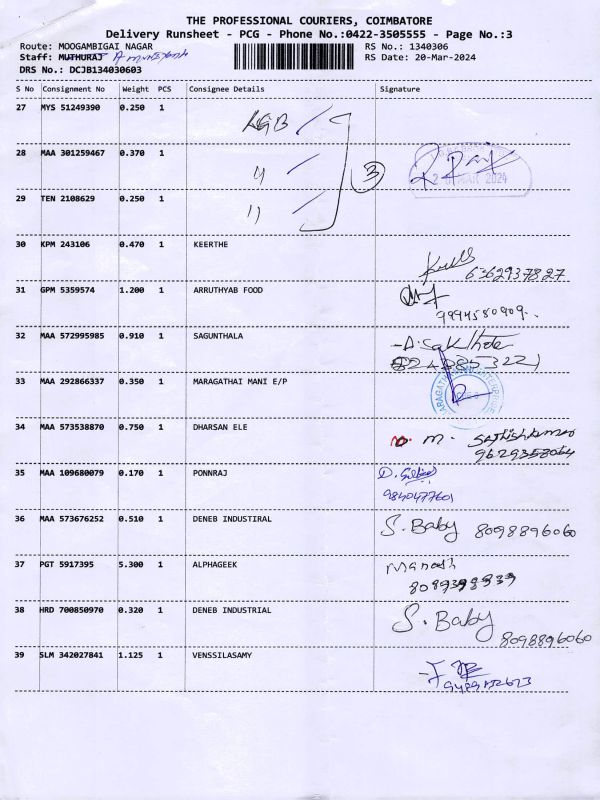 THE PROFESSIONAL COURIERS, COIMBATORE
Delivery Runsheet - PCG - Phone No.:0422-3505555 - Page No.:3
Route: MOOGAMBIGAI NAGAR RS No.: 1340306
Staff: MUTHURAJ RS Date: 20-Mar-2024
DRS No.: DCJB134030603
S No Consignment No Weight PCS Consignee Details Signature
27 MYS 51249390 0.250 1 KGB
28 MAA 301259467 0.370 1 11 3
29 TEN 2108629 0.250 1 11
30 KPM 243106 0.470 1 KEERTHE
6362937827
31 GPM 5359574 1.200 1 ARRUTHYAB FOOD
9994580909
32 MAA 572995985 0.910 1 SAGUNTHALA
33 MAA 292866337 0.350 1 MARAGATHAI MANI E/P
34 MAA 573538870 0.750 1 DHARSAN ELE M. SATHISHKUMAR
9629358064
35 MAA 109680079 0.170 1 PONNRAJ
9840477601
36 MAA 573676252 0.510 1 DENEB INDUSTIRAL S. Baby 8098896060
37 PGT 5917395 5.300 1 ALPHAGEEK
38 HRD 700850970 0.320 1 DENEB INDUSTRIAL S. Baby
8098896060
39 SLM 342027841 1.125 1 VENSSILASAMY